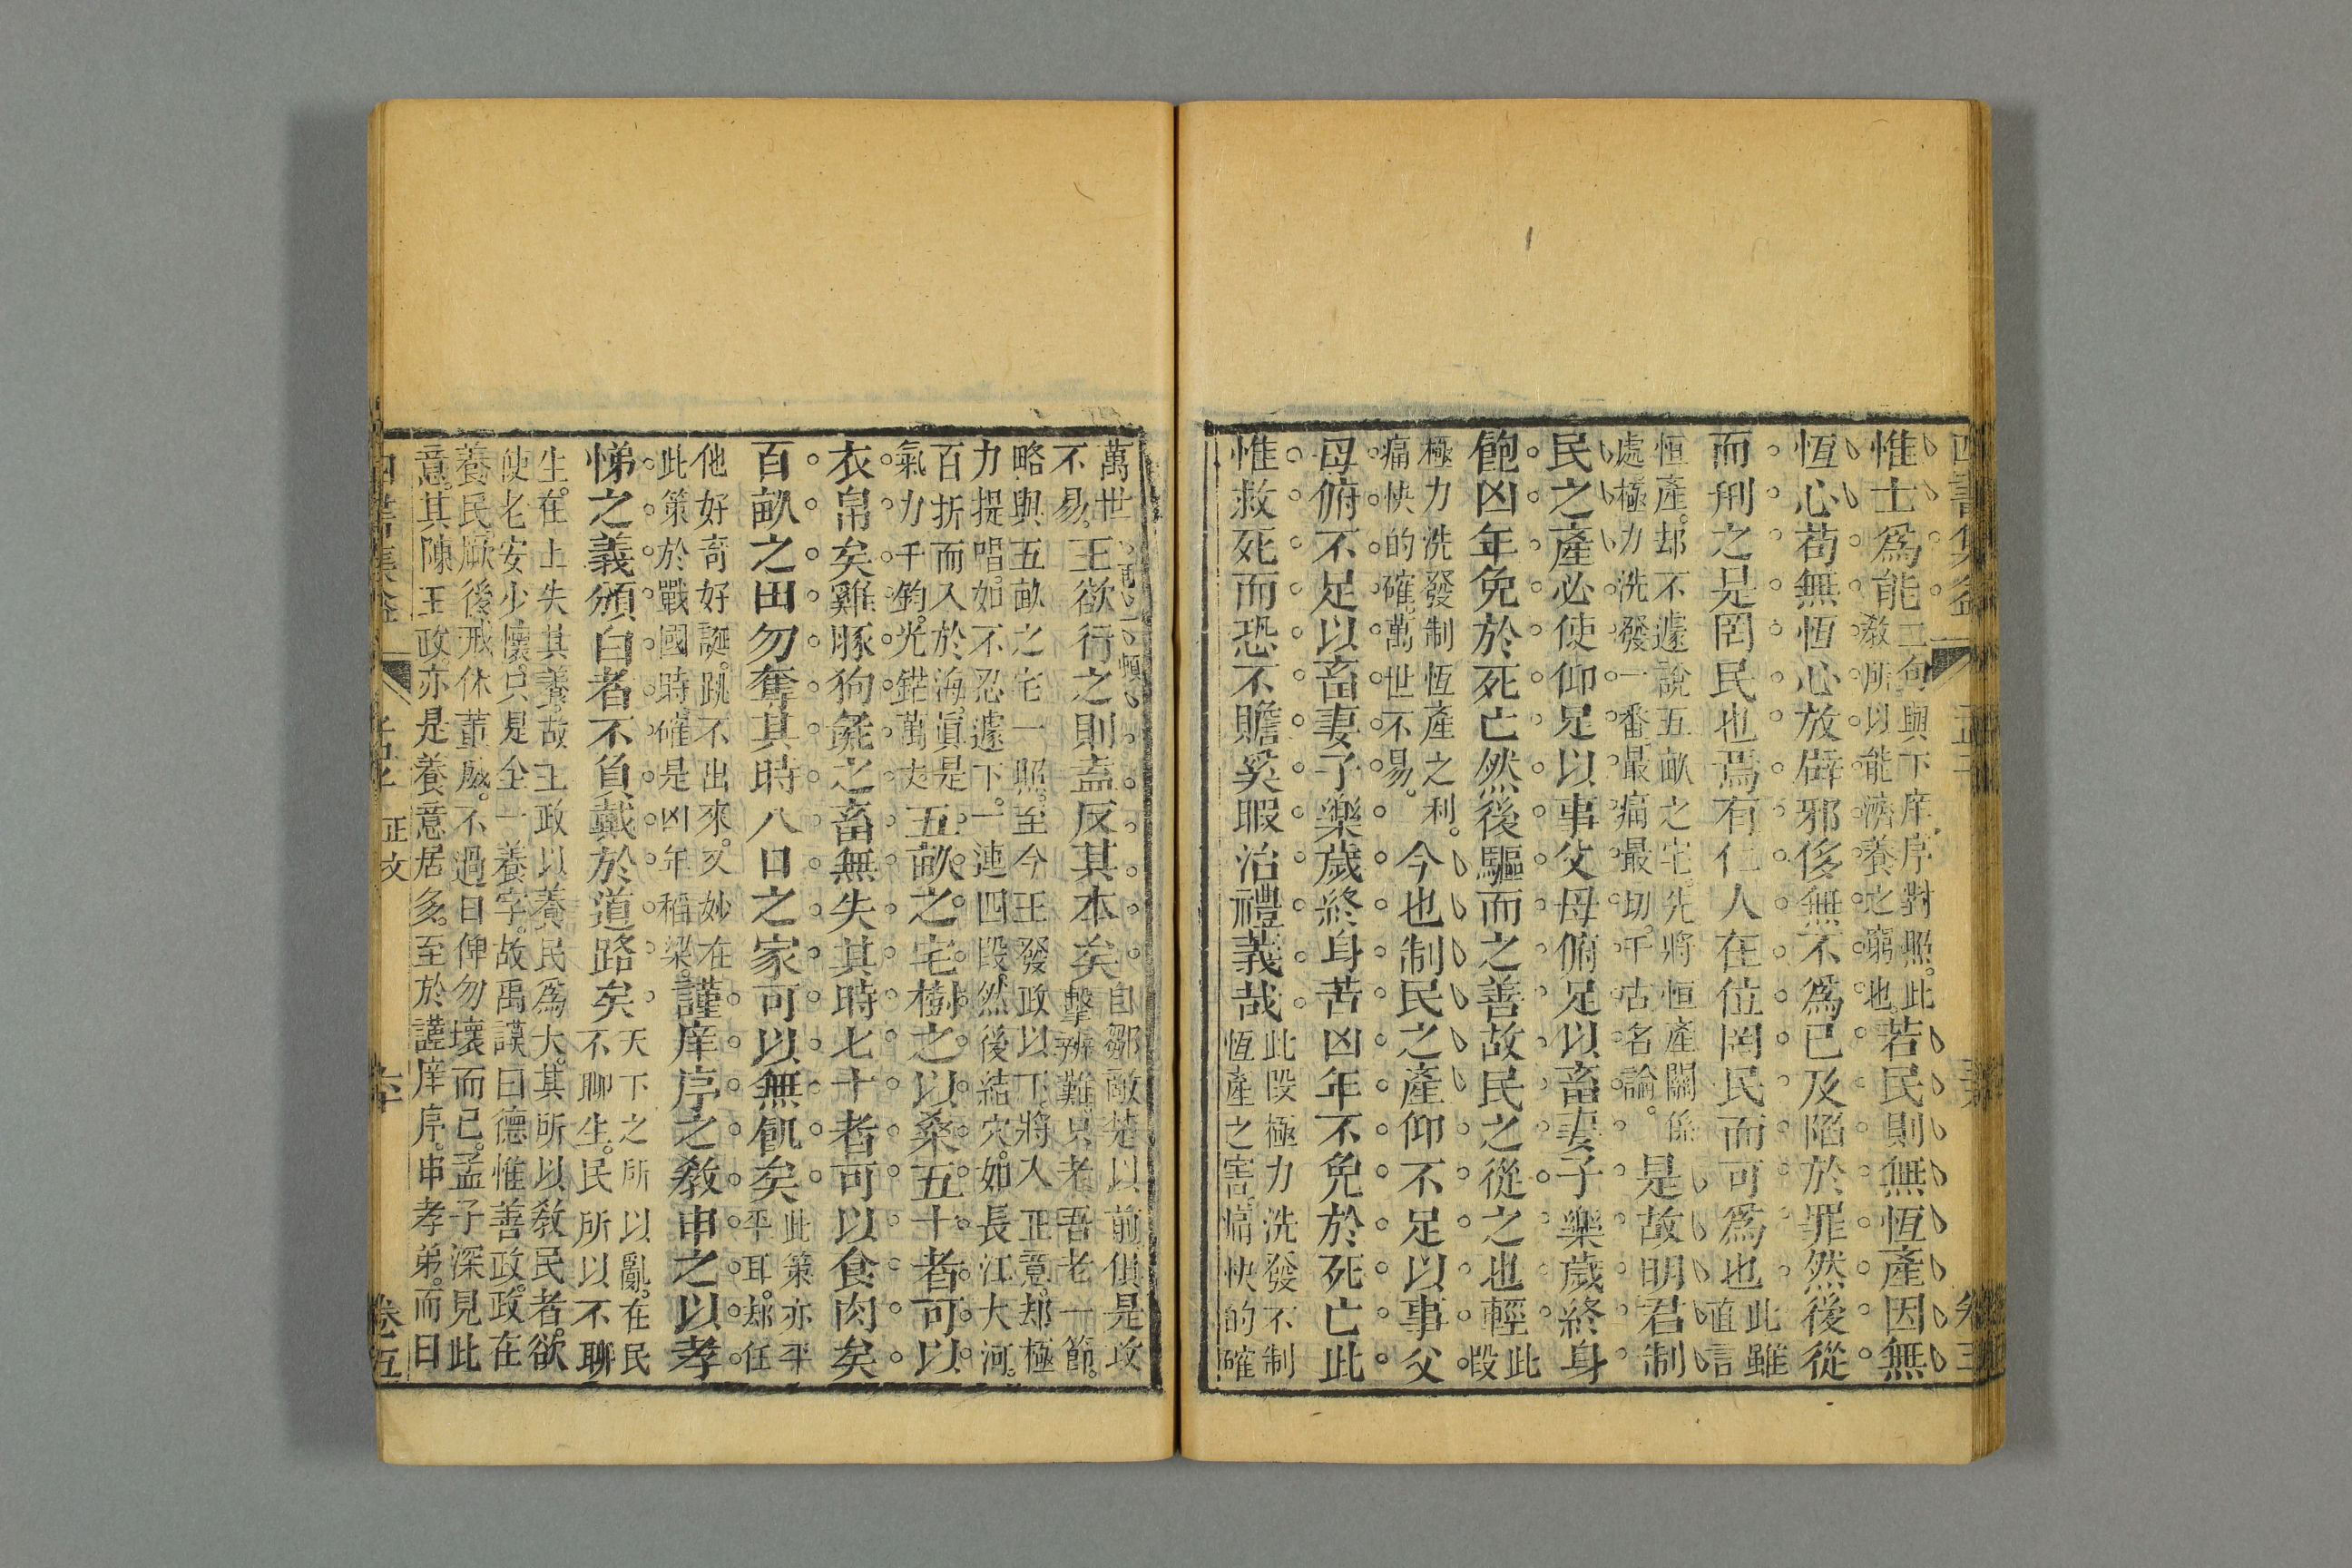 惟士爲能二句與下庠序對照。此
敎所以能濟養之窮也。若民則無恆產因無
恆心苟無恆心放辟邪侈無不爲已及陷於罪然後從
而刑之是罔民也焉有仁人在位罔民而可爲也此雖
直言
恒產。却不遽說五畝之宅。先將恒產關係
處極力洗發一番最痛最切。千古名論。是故明君制
民之產必使仰足以事父母俯足以畜妻子樂歲終身
飽凶年免於死亡然後驅而之善故民之從之也輕此
段
極力洗發制恆產之利。
痛快的確。萬世不易。今也制民之產仰不足以事父
母俯不足以畜妻子樂歲終身苦凶年不免於死亡此
惟救死而恐不贍奚暇治禮義哉此段極力洗發不制
恆產之害。痛快的確
萬世
不易。王欲行之則盍反其本矣自鄒敵楚以前俱是攻
擊辨難。只老吾老一節。
略與五畝之宅一照。至今王發政以下。將入正意。却極
力提唱。如不忍遽下。一連四段。然後結穴。如長江大河。
百折而入於海。眞是
氣力千鈞。光鋩萬丈。五畝之宅樹之以桑五十者可以
衣帛矣雞豚狗彘之畜無失其時七十者可以食肉矣
百畝之田勿奪其時八口之家可以無飢矣此策亦平
平耳。却任
他好奇好誕。跳不出來。又妙在
此策於戰國時。確是凶年稻粱。謹庠序之敎申之以孝
悌之義頒白者不負戴於道路矣天下之所以亂。在民
不聊生。民所以不聊
生。在上失其養。故王政以養民爲大。其所以敎民者。欲
使老安少懷。只是全一養字。故禹謨曰德惟善政。政在
養民。厥後戒休董威。不過曰俾勿壞而已。孟子深見此
意。其陳王政亦是養意居多。至於謹庠序。申孝弟。而曰
正文
卷五